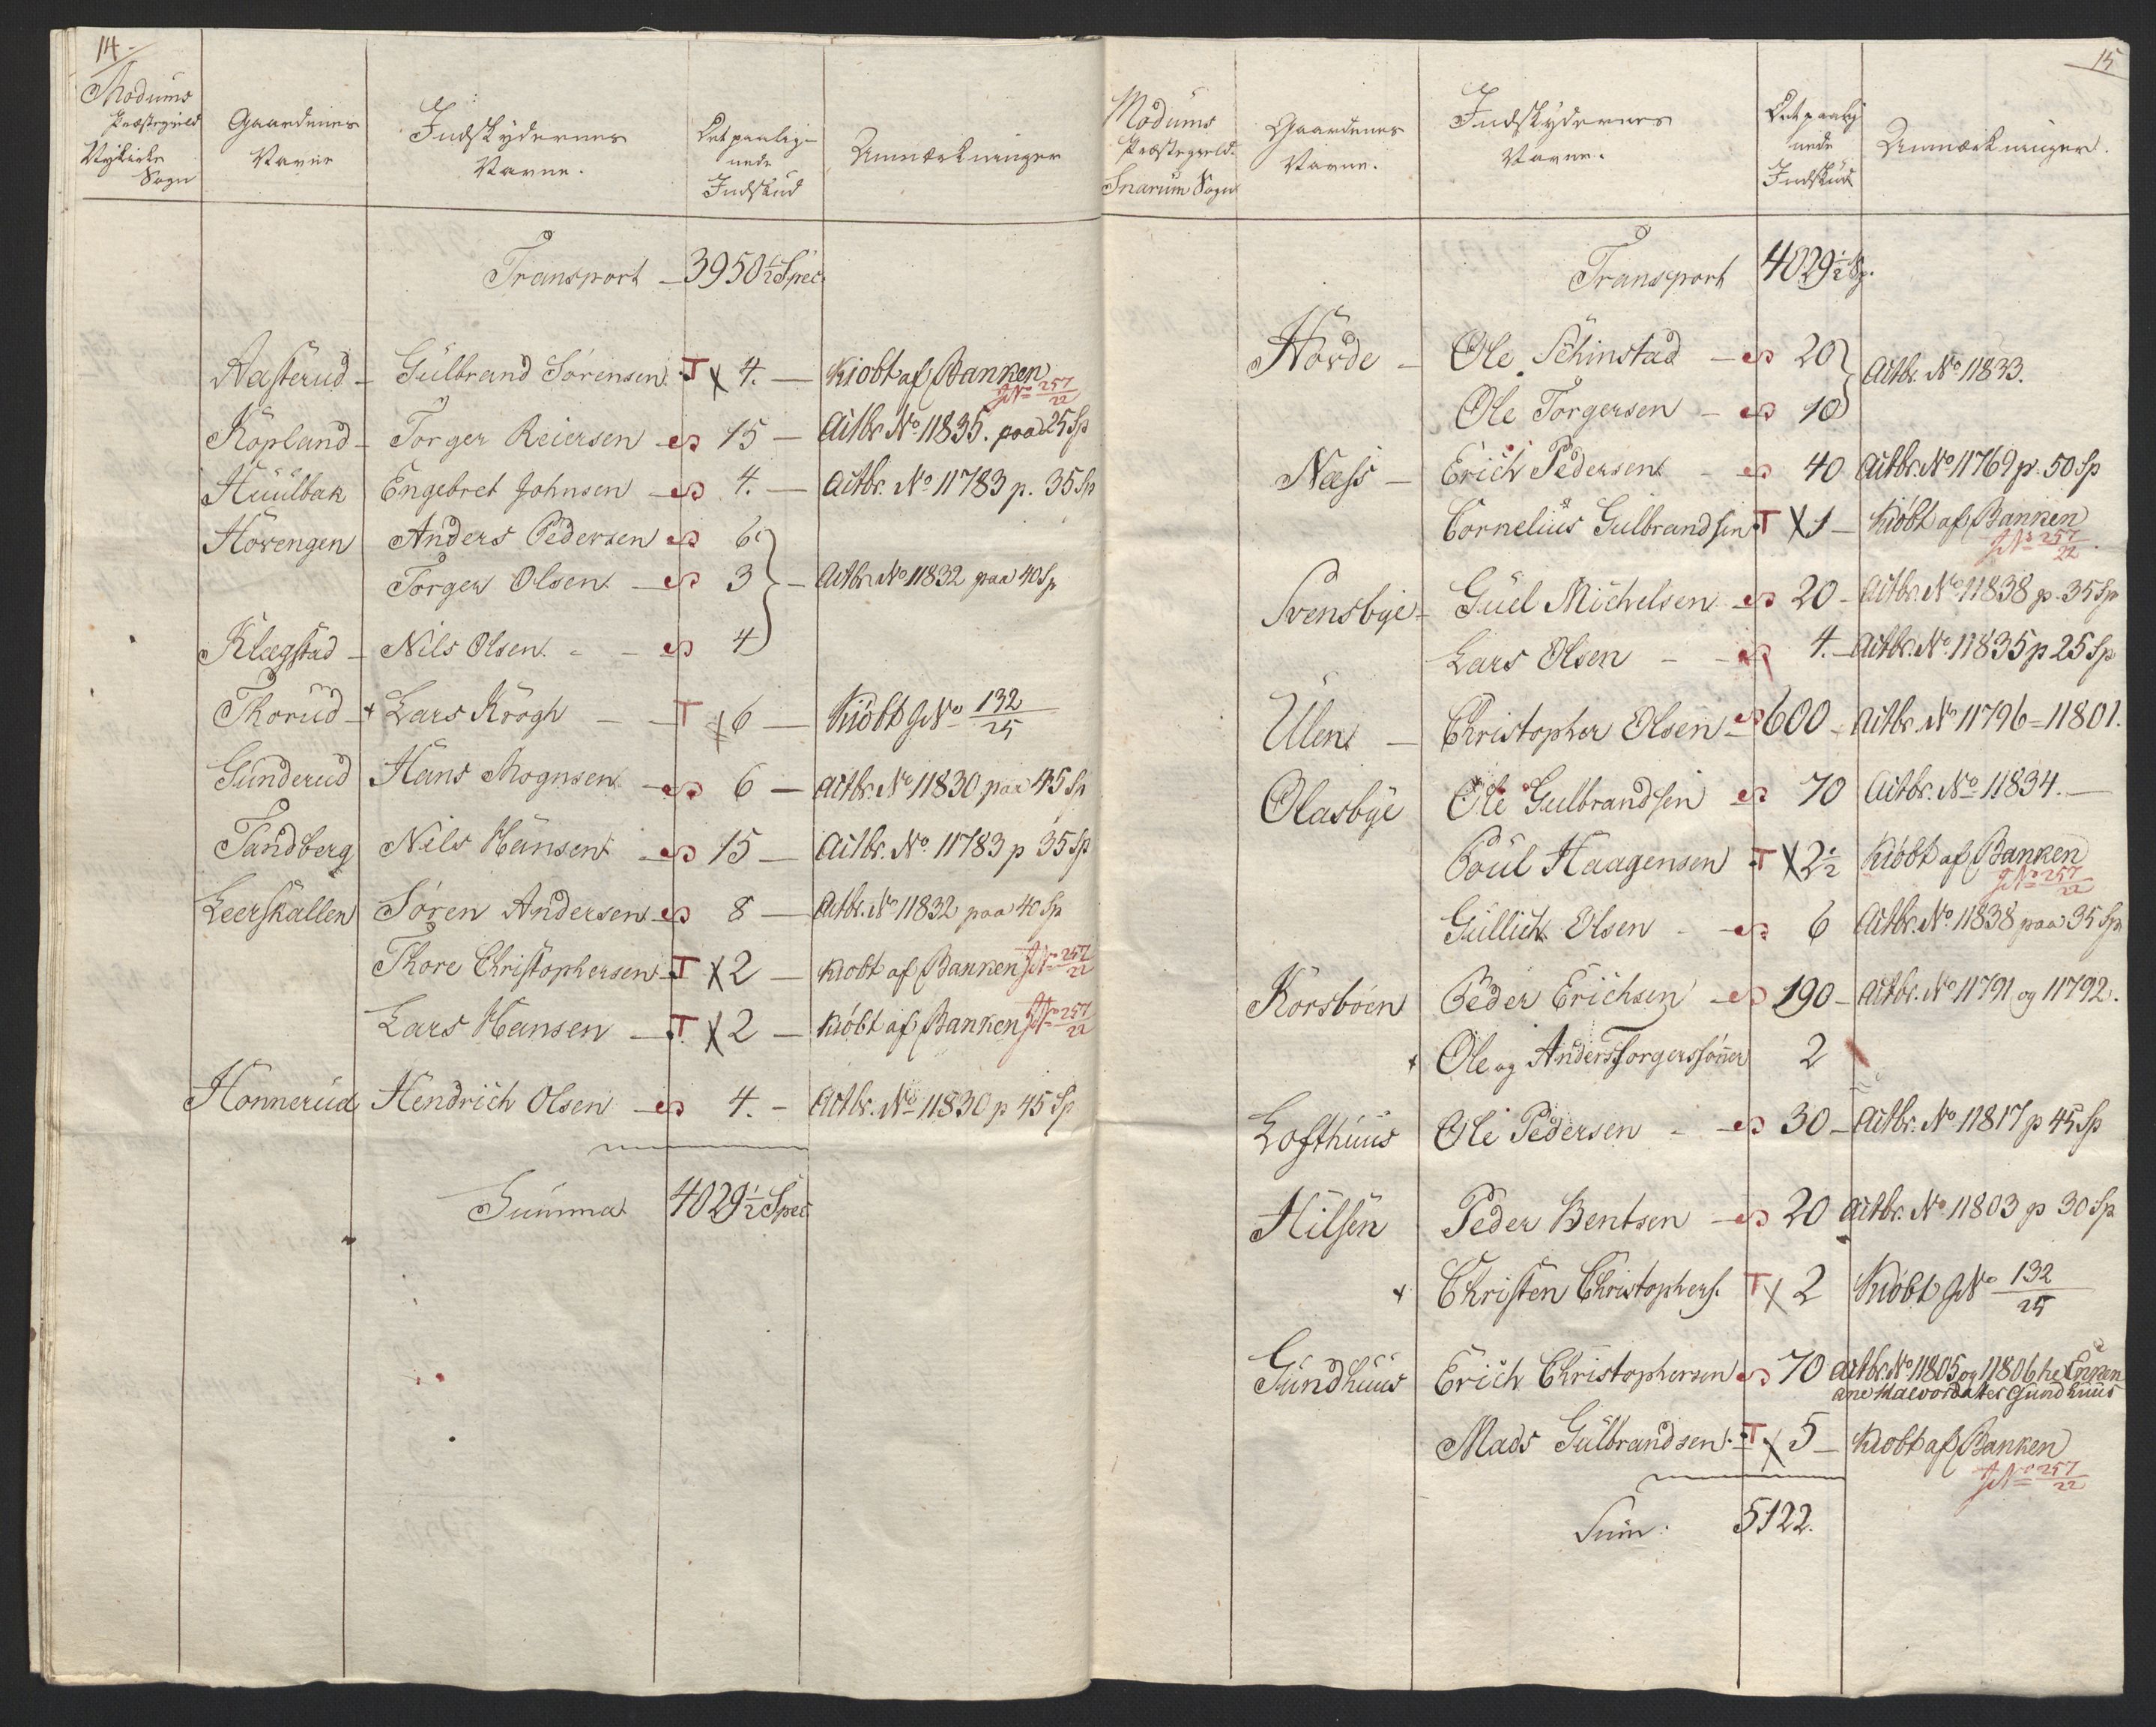 14
Modums
Præstegield
Nykirke
Sogn
Gaardenes
Navne
Indskydernes
Navne.
Det paalig-
nede
Indskud
Anmærkninger
Transport - 3950 1/2 Spec.
Aasterud - Gulbrand Sörensen T X 4. - Kiöbt af Banken
JN° 257/22
Kopland - Torger Reiersen 15 - Actbr. N° 11835. paa 25 Sp
Huulbak Engebret Johnsen 4. - Actbr. N° 11783 p. 35 Sp
Hovengen Anders Pedersen 6
Torger Olsen - 3 - Actbr. N° 11832 paa 40 Sp
Klægstad - Nils Olsen - 4
Thorud - x Lars Krogh - T X 6 - Kiöbt JN° 132/25
Gunderud Hans Mognsen 6 - Actbr. N° 11830 paa 45 Sp
Tandberg Nils Hansen 15 - Actbr. N° 11783 p 35 Sp
Leerskallen Sören Andersen 8 - Actbr. N° 11832 paa 40 Sp
Thore Christophersen T X 2 - Kiobt af Banken JN° 257/22
Lars Hansen - T X 2 - Kiöbt af Banken JN° 257/22
Honnerud Hendrich Olsen 4. - Actbr. N° 11830 p 45 Sp
Summa 4029 1/2 Spec
15
Modums
Præstegield.
Snarum Sogn
Gaardenes
Navne.
Indskydernes
Navne.
Det paalig
nede
Indskud
Anmærkninger.
Transport 4029 1/2 Sp.
Hovde - Ole Schinstad - 20
Actbr. N° 11833.
Ole Torgersen - 10
Næss - Erich Pedersen - 40 Actbr. N° 11769 p. 50 Sp
Cornelius Gulbrandsen T X 1 - Kiöbt af Banken
JN° 257/22
Svensbye - Guel Michelsen 20 - Actbr. N° 11838 p. 35 Sp
Lars Olsen - - 4. - Actbr. N° 11835 p 25 Sp
Ulen - Christopher Olsen - 600 - Actbr. N° 11796 = 11801.
Olasbye Ole Gulbrandsen 70 Actbr. N° 11834. -
Poul Haagensen T X 2 1/2 Kiöbt af Banken
JN° 257/22
Gullich Olsen - 6 Actbr. N° 11838 paa 35 Sp
Korsböen Peder Erichsen - 190 - Actbr. N° 11791 og 11792.
x Ole og Anders Torgerssönner 2
Lofthuus Ole Pedersen - 30 - Actbr. N° 11817 p 45 Sp
Hilsen Peder Bentsen - 20 Actbr. N° 11803 p 30 Sp
x Christen Christophers. T X 2 Kiöbt JN° 132/25
Gundhuus Erich Christophersen 70 Actbr. N° 11805 og 11806 Enken
ane Halvordatter Gundhuus
Mads Gulbrandsen. T X 5 - Kiobt af Banken
JN° 257/22
Sum: 5122.